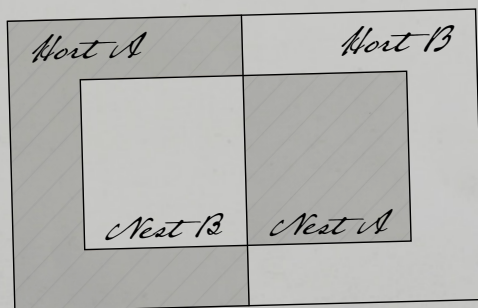 Hort A
Hort B
Nest B
Nest A